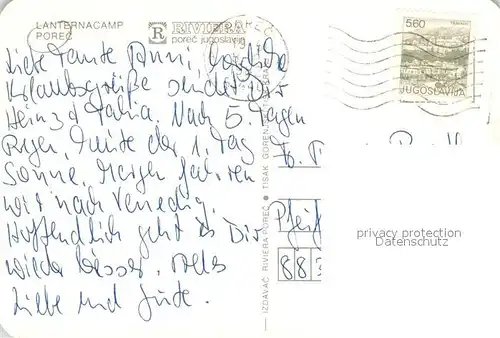 LANTERNACAMP
POREČ
R RIVIERA
poreč jugoslavija
5.60
JUGOSLAVIJA
Liebe Tante Anni, herzliche
Urlaubsgrüße sendet Dir
Heinz + Maria. Nach 5 Tagen
Regen, heute der 1. Tag
Sonne. Morgen fahren
wir nach Venedig.
Hoffendlich geht es Dir
wieder besser. Alles
Liebe und Gute.
IZDAVAČ RIVIERA POREČ ● TISAK GORENJ
Pfeif
88
privacy protection
Datenschutz